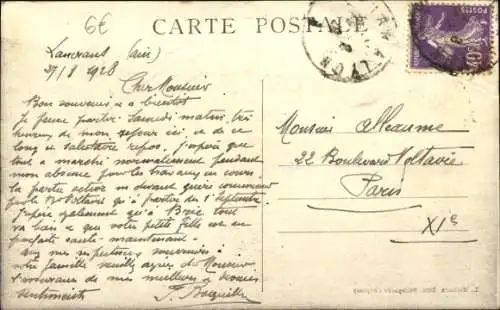 6€
CARTE POSTALE
LYON
POSTES
Lancrans (Ain)
27/8 1928
Cher Monsieur
Bon souvenir et à bientôt
Je pense partir Samedi matin, très
heureux de mon séjour ici et de ce
long et salutaire repos. J'espère que
tout a marché normalement pendant
mon absence pour les travaux en cours.
la partie active ne devant guère commencer
pour le Bd Voltaire qu'à partir du 1er Septembre.
J'espère également qu'à Brie tout
va bien et que votre petite fille est en
parfaite santé maintenant.
Avec mes respectueux souvenirs à
votre famille veuillez agréer cher Monsieur
l'assurance de mes meilleurs et dévoués
sentiments
Monsieur Alleaume
22 Boulevard Voltaire
Paris
XIe